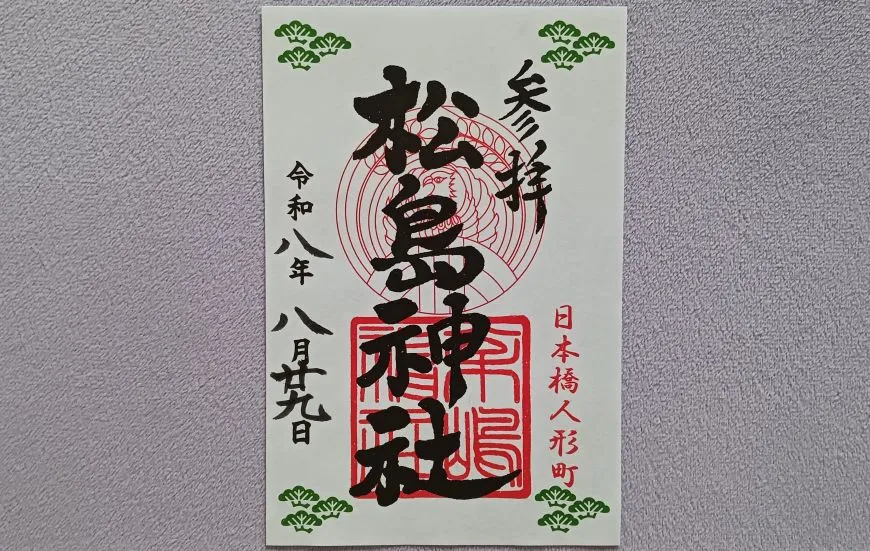 参拝
日本橋人形町
松島神社
令和八年
八月廿九日